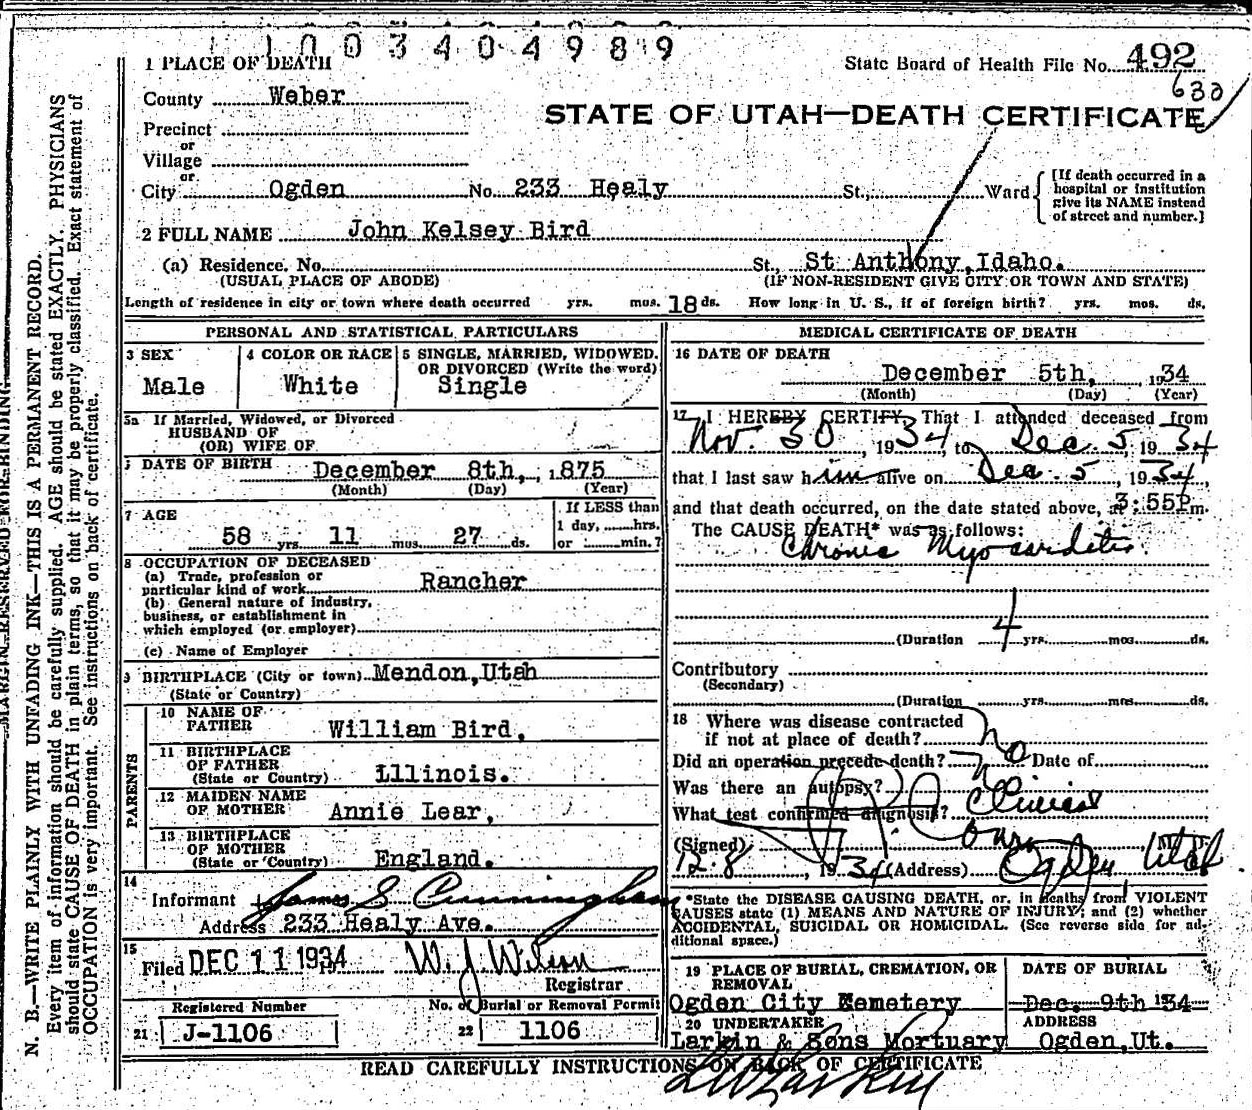 1 0 0 3 4 0 4 9 8 9
1 PLACE OF DEATH
State Board of Health File No. 492
630
County Weber
STATE OF UTAH—DEATH CERTIFICATE
Precinct
or
Village
or
City Ogden No. 233 Healy St., Ward
[If death occurred in a hospital or institution give its NAME instead of street and number.]
2 FULL NAME John Kelsey Bird
(a) Residence. No. St., St Anthony, Idaho.
(USUAL PLACE OF ABODE) (IF NON-RESIDENT GIVE CITY OR TOWN AND STATE)
Length of residence in city or town where death occurred yrs. mos. 18 ds. How long in U. S., if of foreign birth? yrs. mos. ds.
PERSONAL AND STATISTICAL PARTICULARS
3 SEX
Male
4 COLOR OR RACE
White
5 SINGLE, MARRIED, WIDOWED, OR DIVORCED (Write the word)
Single
5a If Married, Widowed, or Divorced
HUSBAND OF
(OR) WIFE OF
DATE OF BIRTH December 8th, 1875
(Month) (Day) (Year)
7 AGE
58 yrs. 11 mos. 27 ds.
If LESS than
1 day, hrs.
or min.?
8 OCCUPATION OF DECEASED
(a) Trade, profession or
particular kind of work Rancher
(b) General nature of industry,
business, or establishment in
which employed (or employer)
(c) Name of Employer
9 BIRTHPLACE (City or town) Mendon, Utah
(State or Country)
PARENTS
10 NAME OF
FATHER William Bird,
11 BIRTHPLACE
OF FATHER
(State or Country) Illinois.
12 MAIDEN NAME
OF MOTHER Annie Lear,
13 BIRTHPLACE
OF MOTHER
(State or Country) England.
14
Informant James S Cunningham
Address 233 Healy Ave.
15
Filed DEC 11 1934 W. J. Wilson
Registrar
Registered Number
21 J-1106
No. of Burial or Removal Permit
22 1106
MEDICAL CERTIFICATE OF DEATH
16 DATE OF DEATH
December 5th, 1934
(Month) (Day) (Year)
17 I HEREBY CERTIFY, That I attended deceased from
Nov. 30, 1934, to Dec. 5 1934
that I last saw him alive on Dec. 5, 1934,
and that death occurred, on the date stated above, at 3:55P m.
The CAUSE DEATH* was as follows:
Chronic Myocarditis
(Duration 4 yrs. mos. ds.
Contributory
(Secondary)
(Duration yrs. mos. ds.
18 Where was disease contracted
if not at place of death?
Did an operation precede death? No Date of
Was there an autopsy? No
What test confirmed diagnosis? Clinical
(Signed) M. D.
12-8, 1934 (Address) Ogden Utah
*State the DISEASE CAUSING DEATH, or, in deaths from VIOLENT
CAUSES state (1) MEANS AND NATURE OF INJURY; and (2) whether
ACCIDENTAL, SUICIDAL OR HOMICIDAL. (See reverse side for ad-
ditional space.)
19 PLACE OF BURIAL, CREMATION, OR
REMOVAL
Ogden City Cemetery
DATE OF BURIAL
Dec. 9th 1934
20 UNDERTAKER
Larkin & Sons Mortuary
ADDRESS
Ogden, Ut.
READ CAREFULLY INSTRUCTIONS ON BACK OF CERTIFICATE
MARGIN RESERVED FOR BINDING
N. B.—WRITE PLAINLY WITH UNFADING INK—THIS IS A PERMANENT RECORD.
Every item of information should be carefully supplied. AGE should be stated EXACTLY. PHYSICIANS
should state CAUSE OF DEATH in plain terms, so that it may be properly classified. Exact statement of
OCCUPATION is very important. See instructions on back of certificate.